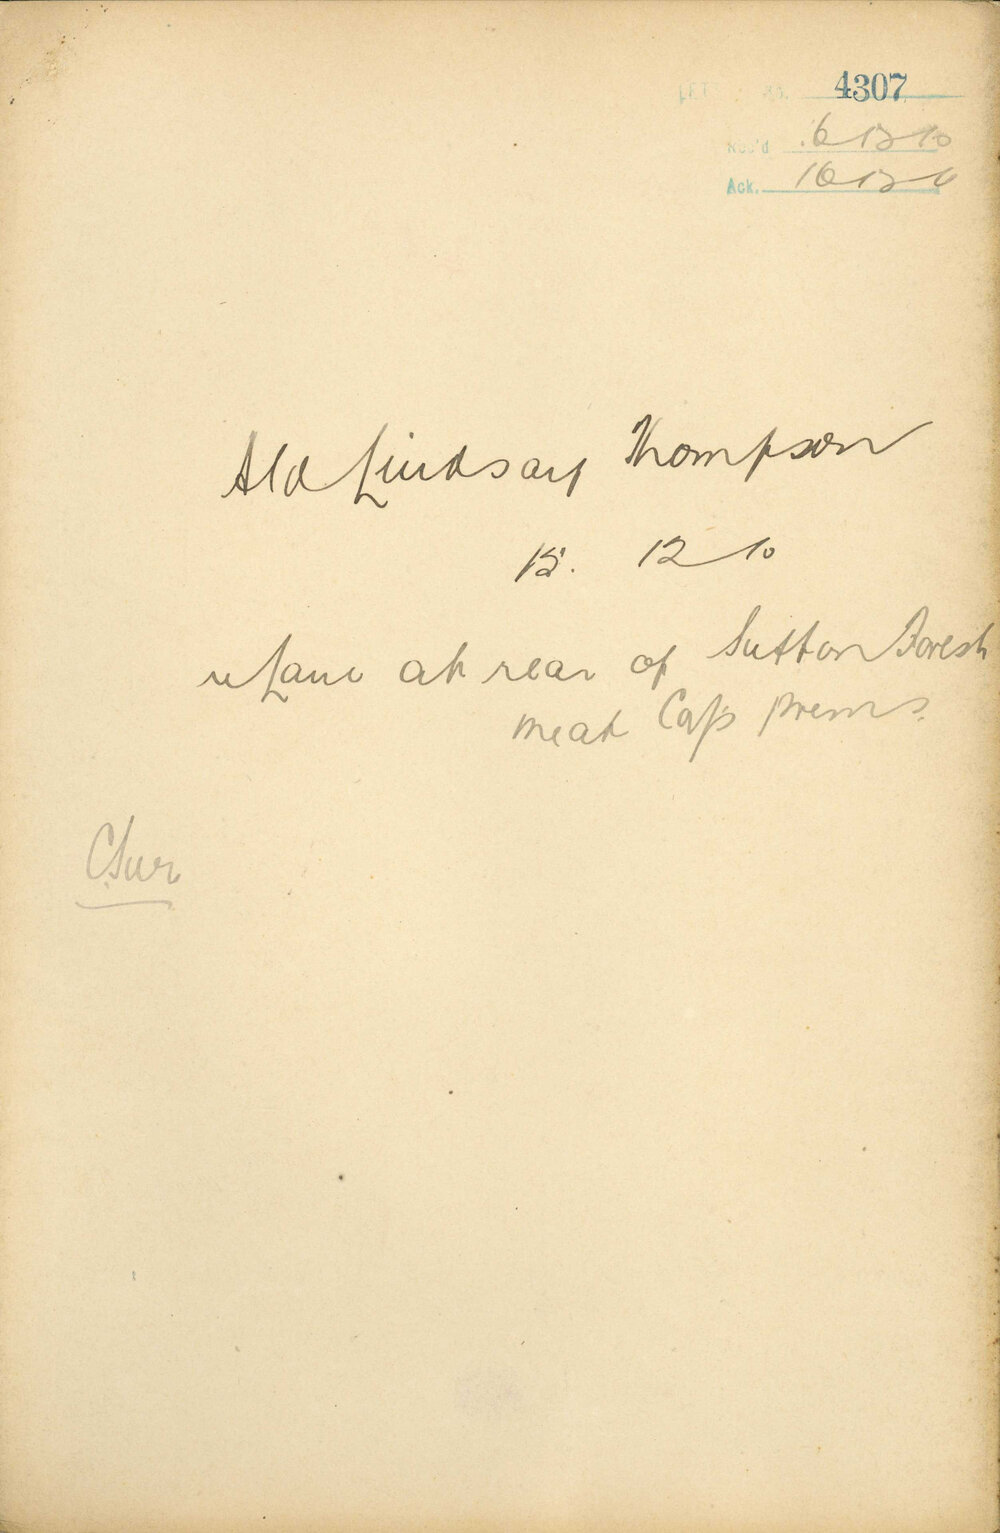 4307
Rec'd 16 12 10
Ack. 16 12 10
Ald Lindsay Thompson
15. 12 10
re Lane at rear of Sutton Forest
Meat Co's prems.
C. Sur